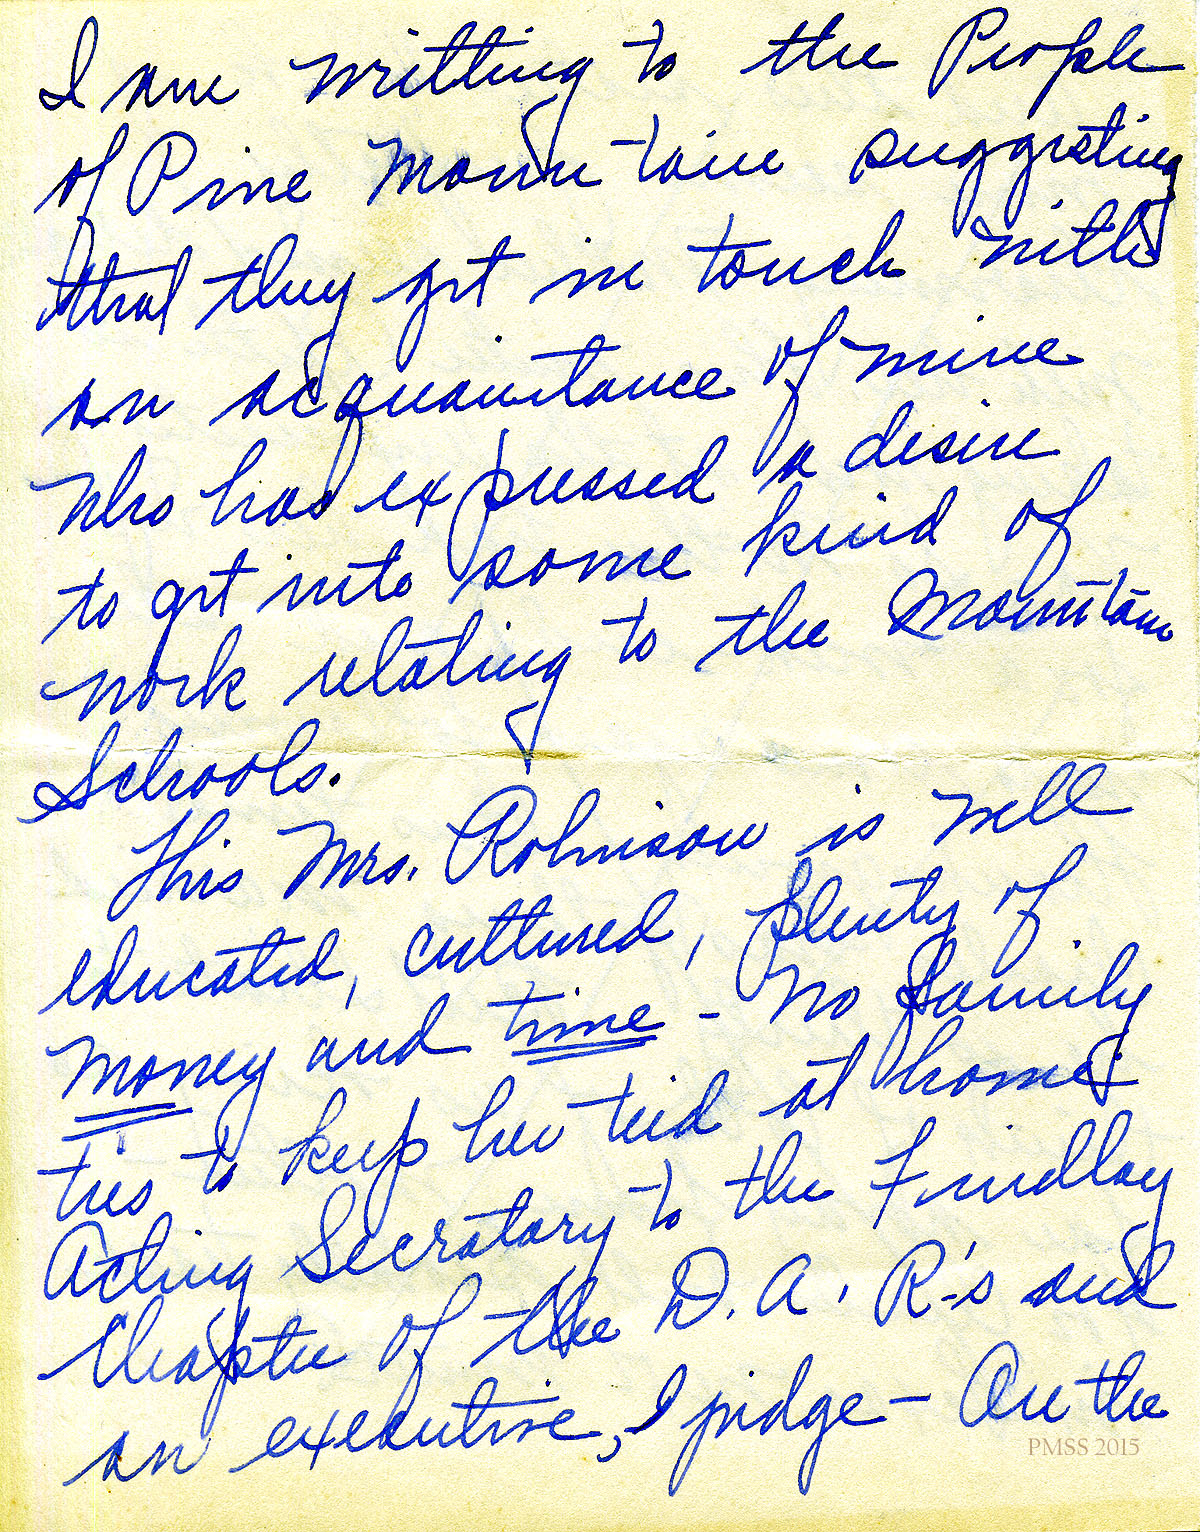 I am writting to the People
of Pine Mountain suggesting
that they get in touch with
an acquaintance of mine
who has expressed a desire
to get into some kind of
work relating to the Mountain
Schools.
This Mrs. Robinson is well
educated, cultured, plenty of
money and time - no family
ties to keep her tied at home
Acting Secratary to the Findlay
Chapter of the D. A. R's and
an executive, I judge - Are the
PMSS 2015